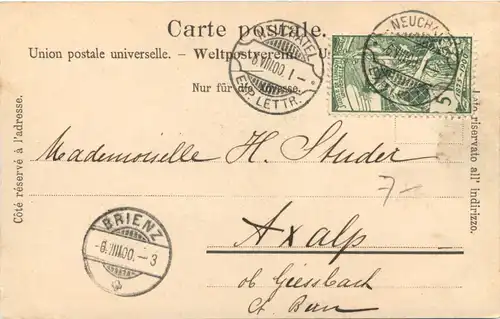 Carte postale.
Union postale universelle. – Weltpostverein. U
Nur für die Adresse.
NEUCHATEL
6 VIII 00. 1 –
EXP. LETTR.
NEUCHA
VIII
LETTR.
5
Côté réservé à l'adresse.
Lato riservato all' indirizzo.
Mademoiselle H. Studer
7 –
Axalp
ob Giessbach
Ct. Bern
BRIENZ
-6.VIII.00.– 3